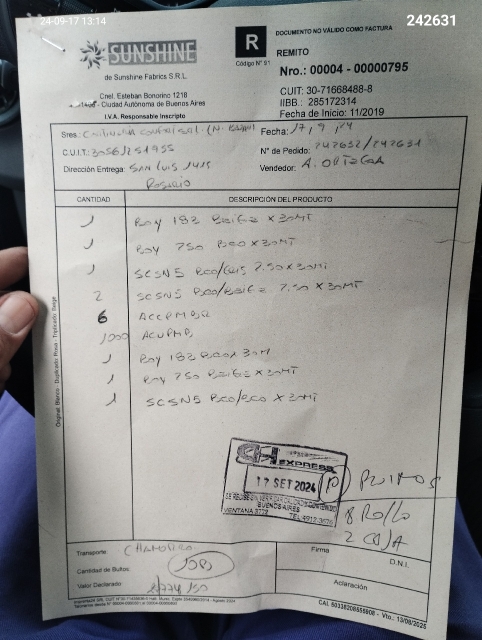 24-09-17 13:14
242631
SUNSHINE
de Sunshine Fabrics S.R.L.
Cnel. Esteban Bonorino 1218
- Ciudad Autónoma de Buenos Aires
I.V.A. Responsable Inscripto
R
Código N° 91
DOCUMENTO NO VÁLIDO COMO FACTURA
REMITO
Nro.: 00004 - 00000795
CUIT: 30-71668488-8
IIBB.: 285172314
Fecha de Inicio: 11/2019
Sres:
Fecha: 17, 9, 24
C.U.I.T.:
N° de Pedido: 242632/242631
Dirección Entrega: SAN LUIS 1415
Vendedor: A. ORTEGA
ROSARIO
CANTIDAD
DESCRIPCIÓN DEL PRODUCTO
1 ROY 182 BEIGE X 30MT
1 ROY 750 BCO X 30MT
1 SCSN5 BCO/GRIS 2.50X30MT
2 SCSN5 BCO/BEIGE 2.50 X 30MT
6
1000
1 ROY 182 BCO X 30M
1 ROY 750 BEIGE X 30MT
1 SCSN5 BCO/BCO X 30MT
Original: Blanco - Duplicado: Rosa - Triplicado: Beige
EXPRESS
17 SET 2024
BUENOS AIRES
(P)
8 ROLLO
2 CAJA
Transporte:
Cantidad de Bultos:
Valor Declarado
Firma
D.N.I.
Aclaración
CAI. 50338208555908 - Vto.: 13/08/2025